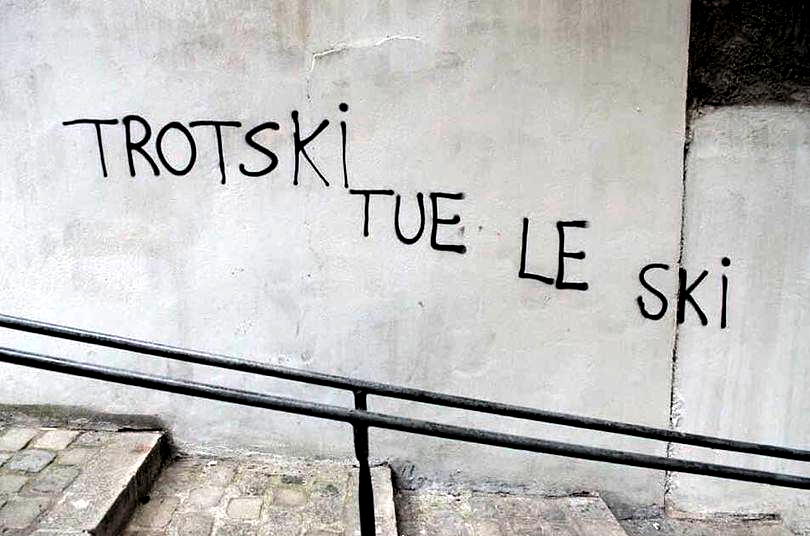 TROTSKi
TUE LE SKi